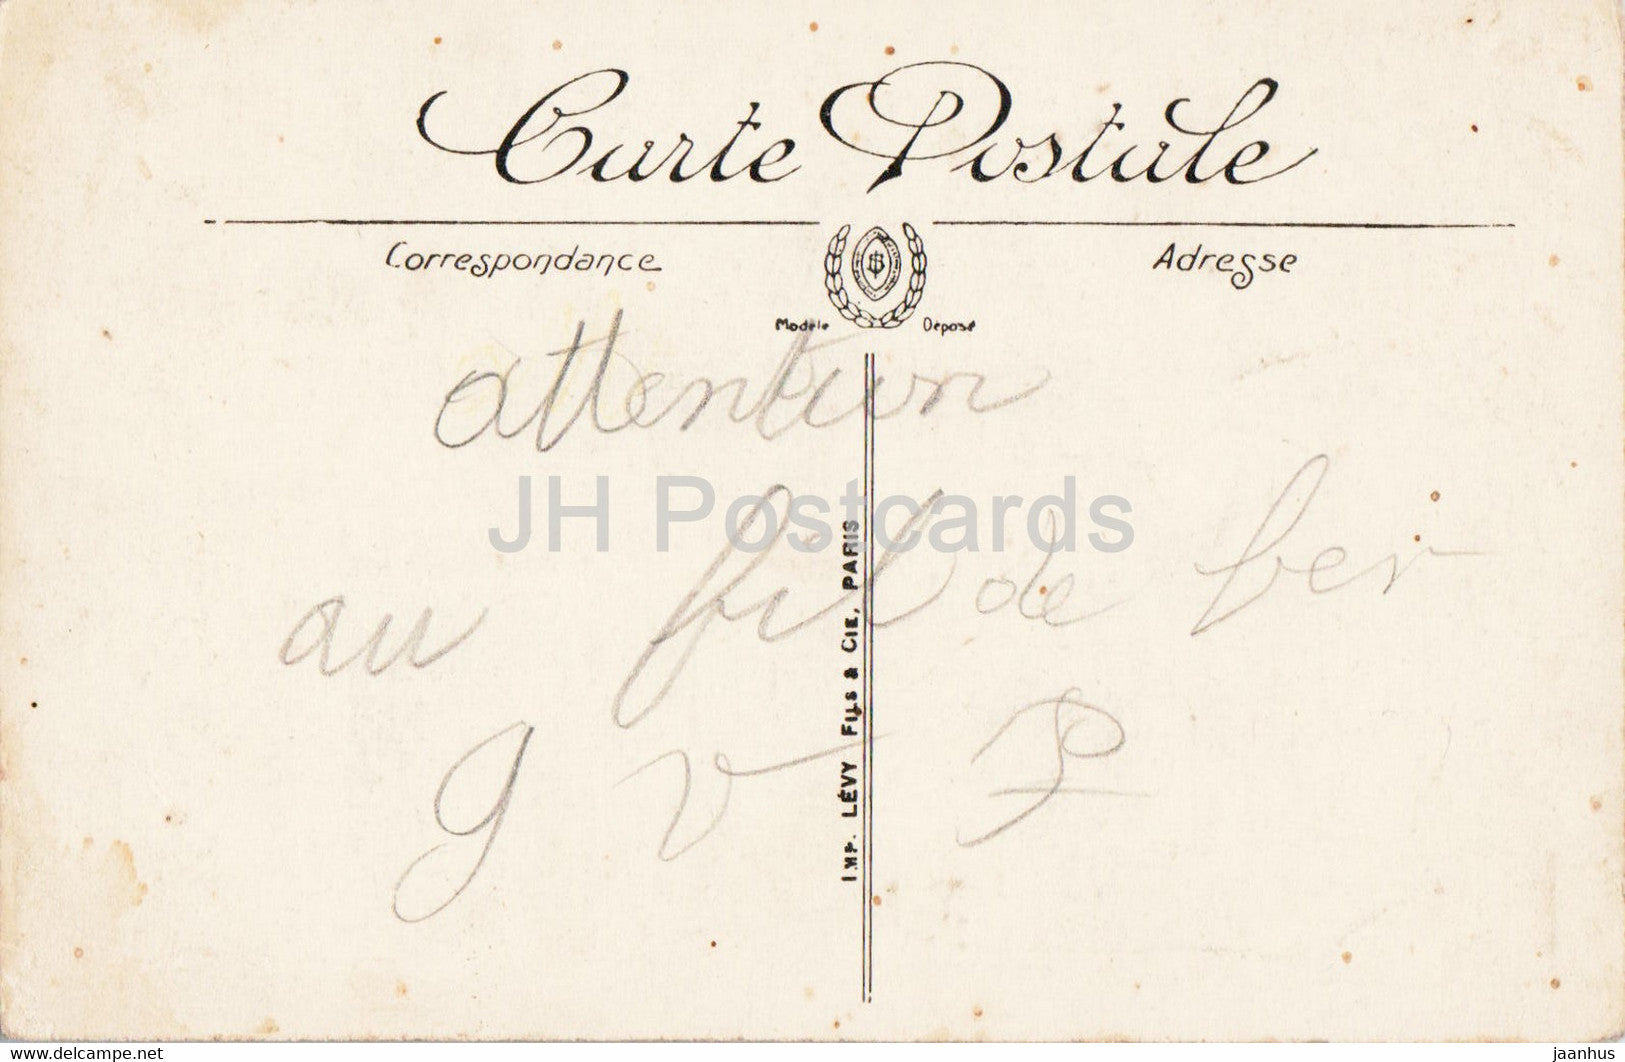 Carte Postale
Correspondance
Adresse
Modèle Déposé
attention
JH Postcards
au fil de fer
g v P
IMP. LÉVY FILS & CIE, PARIS
delcampe.net
jaanhus